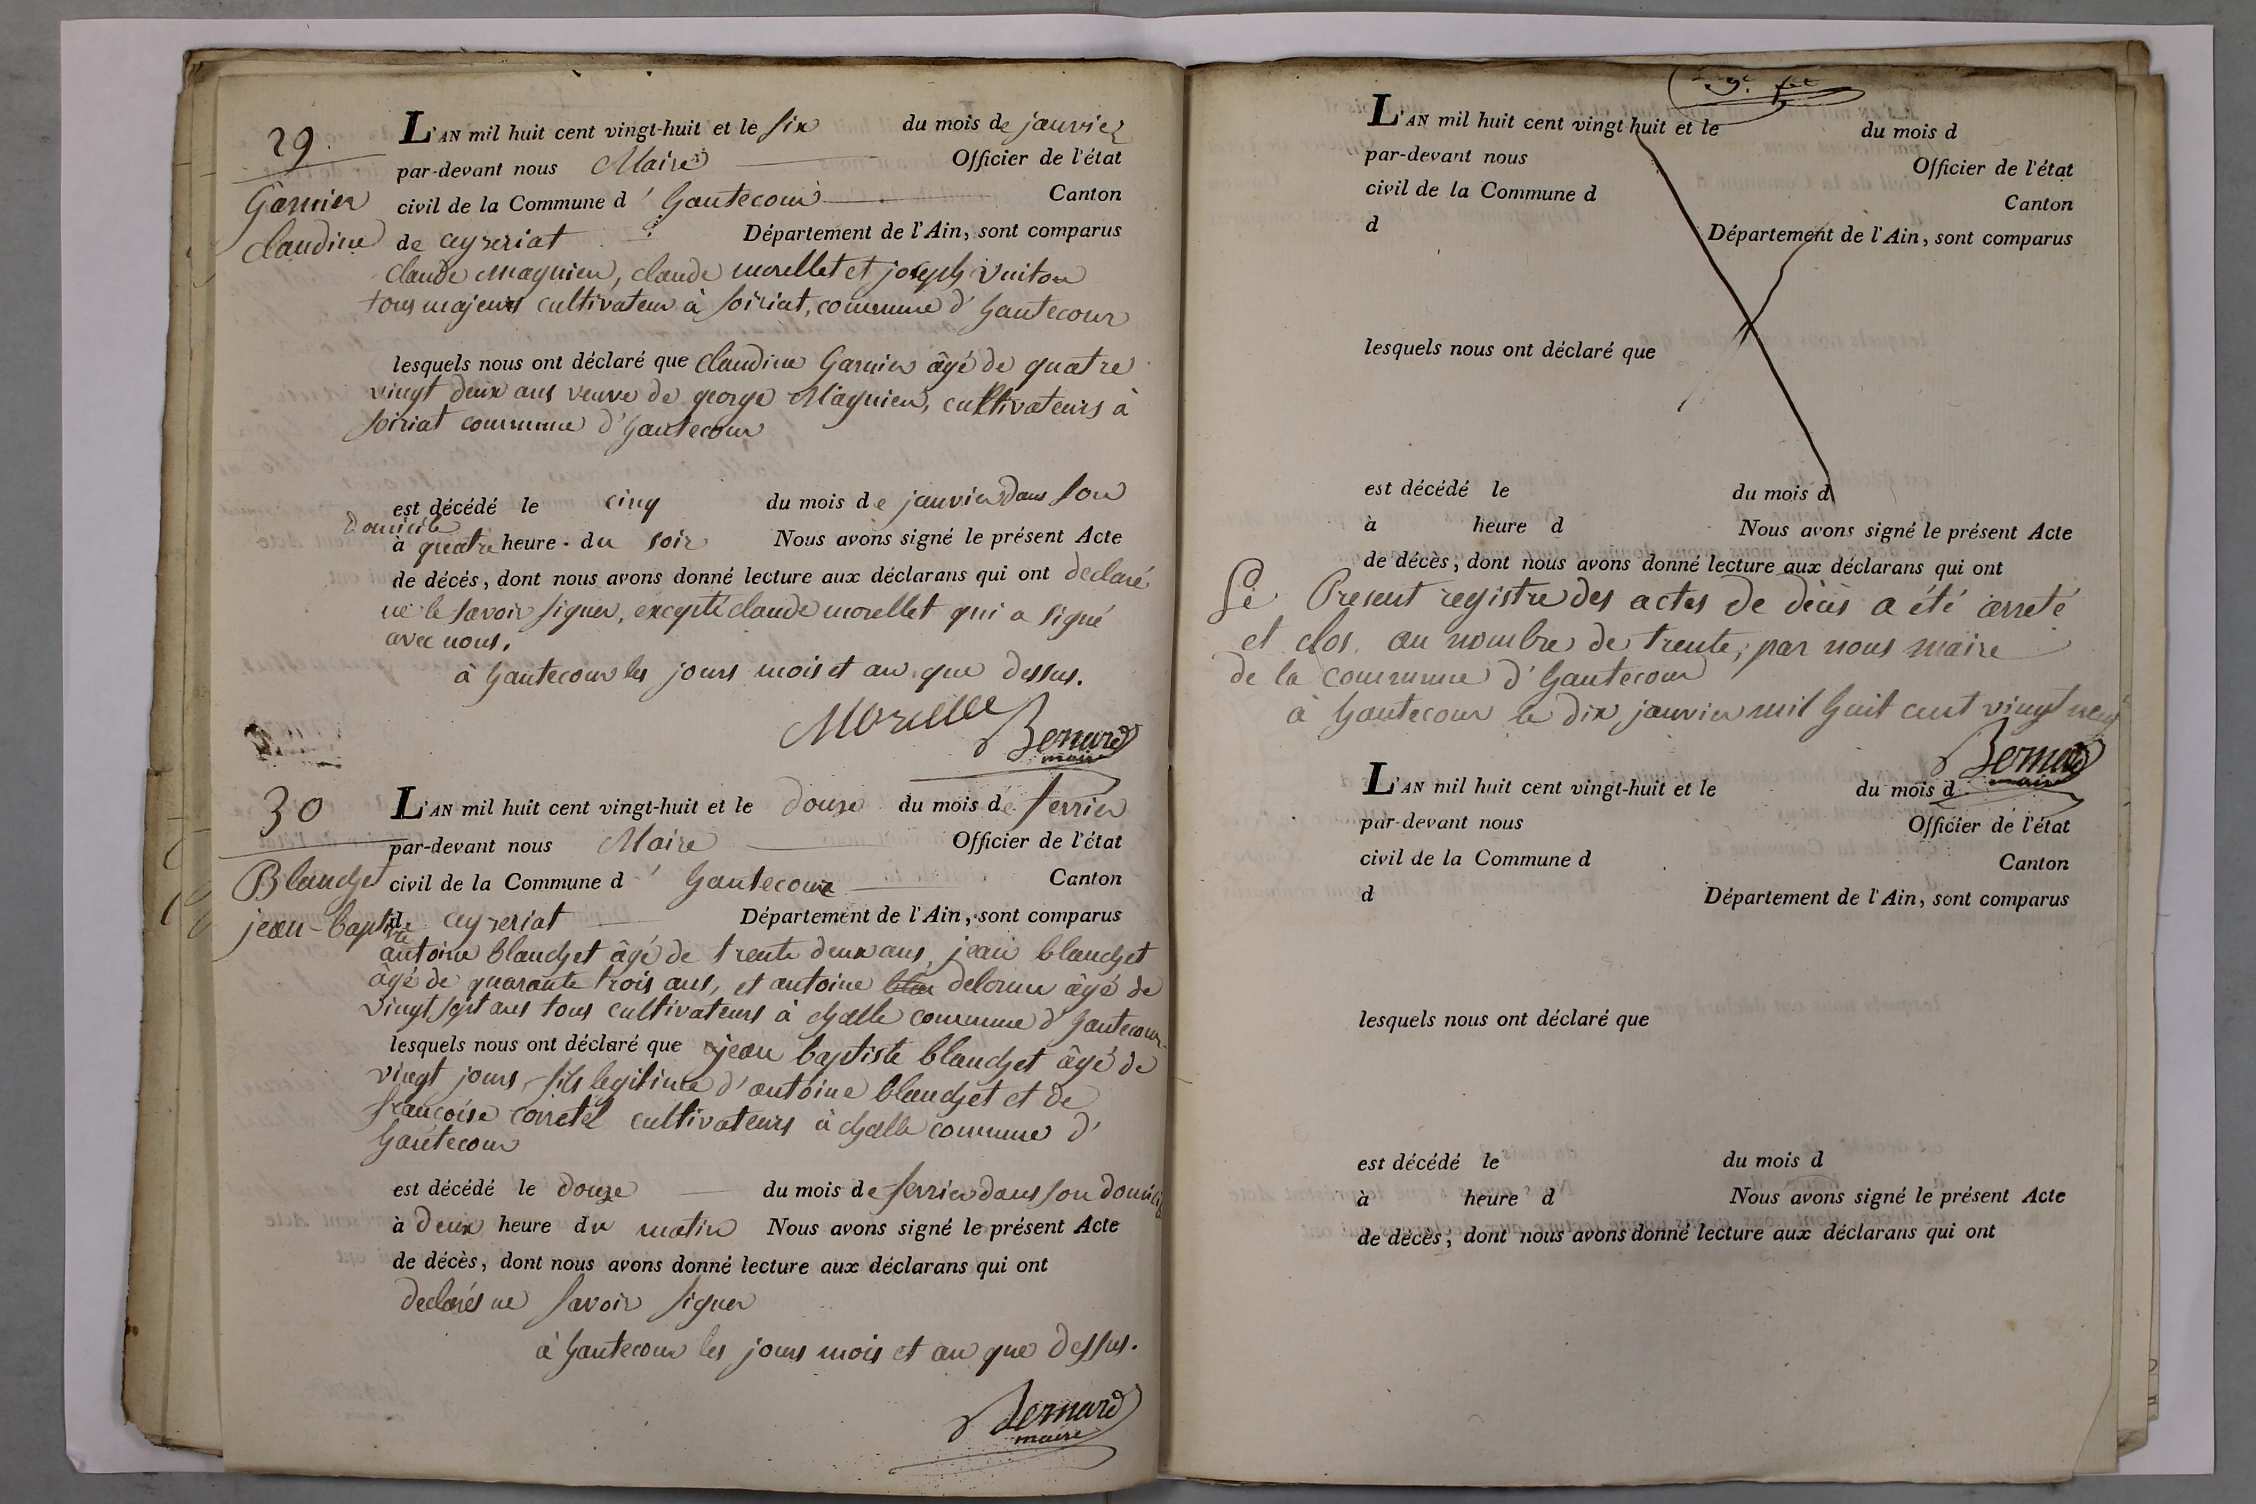 29.
Garnier
claudine
L'AN mil huit cent vingt-huit et le six du mois de janvier
par-devant nous Maire Officier de l'état
civil de la Commune d'hautecour Canton
de ceyzeriat Département de l'Ain, sont comparus
claude magnien, claude morellet et joseph vuiton
tous majeurs cultivateur à soiriat, commune d'hautecour
lesquels nous ont déclaré que claudine Garnier âgé de quatre
vingt deux ans veuve de george Magnien, cultivateurs à
soiriat commune d'hautecour
est décédé le cinq du mois de janvier dans son
domicile
à quatre heure du soir Nous avons signé le présent Acte
de décès, dont nous avons donné lecture aux déclarans qui ont declaré
ne le savoir signer, excepté claude morellet qui a signé
avec nous.
à hautecour les jours mois et an que dessus.
Bernard
maire
30
Blanchet
jean-baptiste
L'AN mil huit cent vingt-huit et le douze du mois de fevrier
par-devant nous Maire Officier de l'état
civil de la Commune d'hautecour Canton
de ceyzeriat Département de l'Ain, sont comparus
antoine blanchet âgé de trente deux ans, jean blanchet
âgé de quarante trois ans, et antoine delorme âgé de
vingt sept ans tous cultivateurs à challe commune d'hautecour
lesquels nous ont déclaré que jean baptiste blanchet âgé de
vingt jours, fils legitime d'antoine blanchet et de
francoise corretel cultivateurs à challe commune d'
hautecour
est décédé le douze du mois de fevrier dans son domicile
à deux heure du matin Nous avons signé le présent Acte
de décès, dont nous avons donné lecture aux déclarans qui ont
declarés ne savoir signer
à hautecour les jours mois et an que dessus.
Bernard
maire
L'AN mil huit cent vingt-huit et le du mois d
par-devant nous Officier de l'état
civil de la Commune d Canton
d Département de l'Ain, sont comparus
lesquels nous ont déclaré que
est décédé le du mois d
à heure d Nous avons signé le présent Acte
de décès, dont nous avons donné lecture aux déclarans qui ont
Le Present registre des actes de décès a été arreté
et clos, au nombre de trente, par nous maire
de la commune d'hautecour
à hautecour le dix janvier mil huit cent vingt neuf
Bernard
maire
L'AN mil huit cent vingt-huit et le du mois d
par-devant nous Officier de l'état
civil de la Commune d Canton
d Département de l'Ain, sont comparus
lesquels nous ont déclaré que
est décédé le du mois d
à heure d Nous avons signé le présent Acte
de décès, dont nous avons donné lecture aux déclarans qui ont